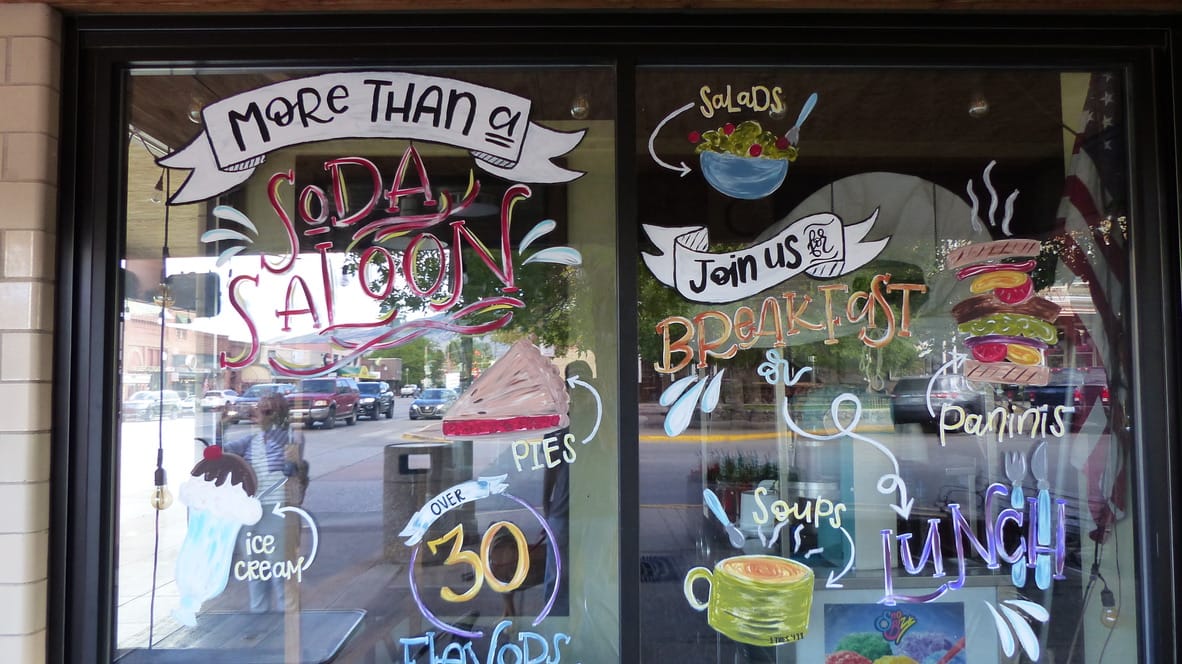 MORE THAN a
SODA
SALOON
PIES
ice
CREAM
OVER
30
FLAVORS
SALADS
Join us for
BREAKFAST
or
PANINIS
Soups
LUNCH